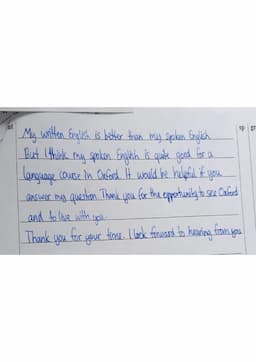 My written English is better than my spoken English.
But I think my spoken English is quite good for a
language course in Oxford. It would be helpful if you
answer my question. Thank you for the opportunity to see Oxford
and to live with you.
Thank you for your time. I look forward to hearing from you